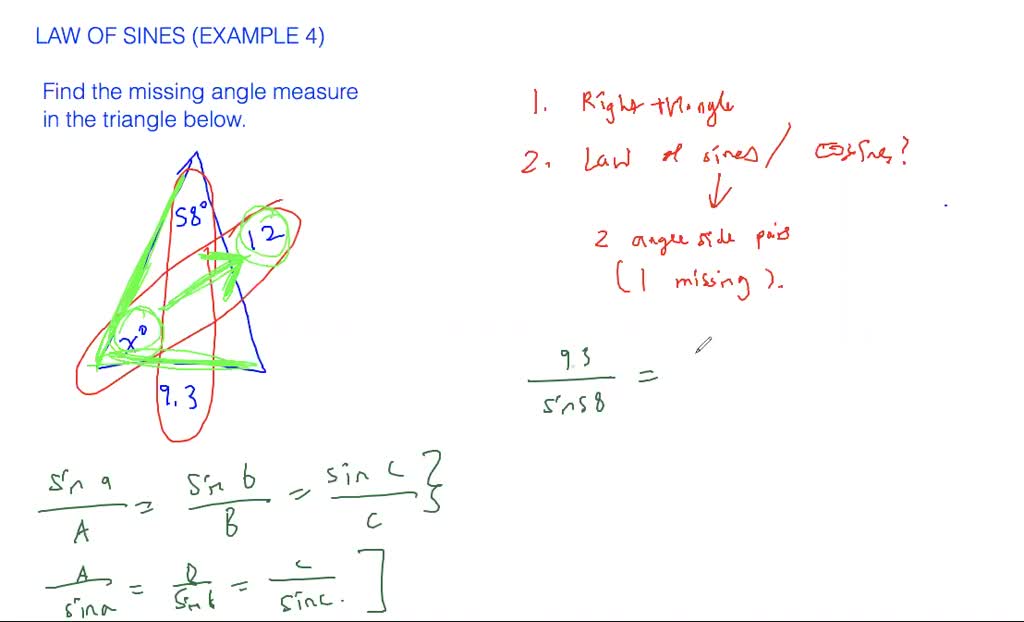 LAW OF SINES (EXAMPLE 4)
Find the missing angle measure
in the triangle below.
58°
12
x°
9.3
1. Right triangle
2. Law of sines / cosines?
2 angle side pairs
(1 missing).
9.3 / sin58 =
sin a / A = sin b / B = sin c / C }
A / sin a = B / sin b = C / sin c. ]